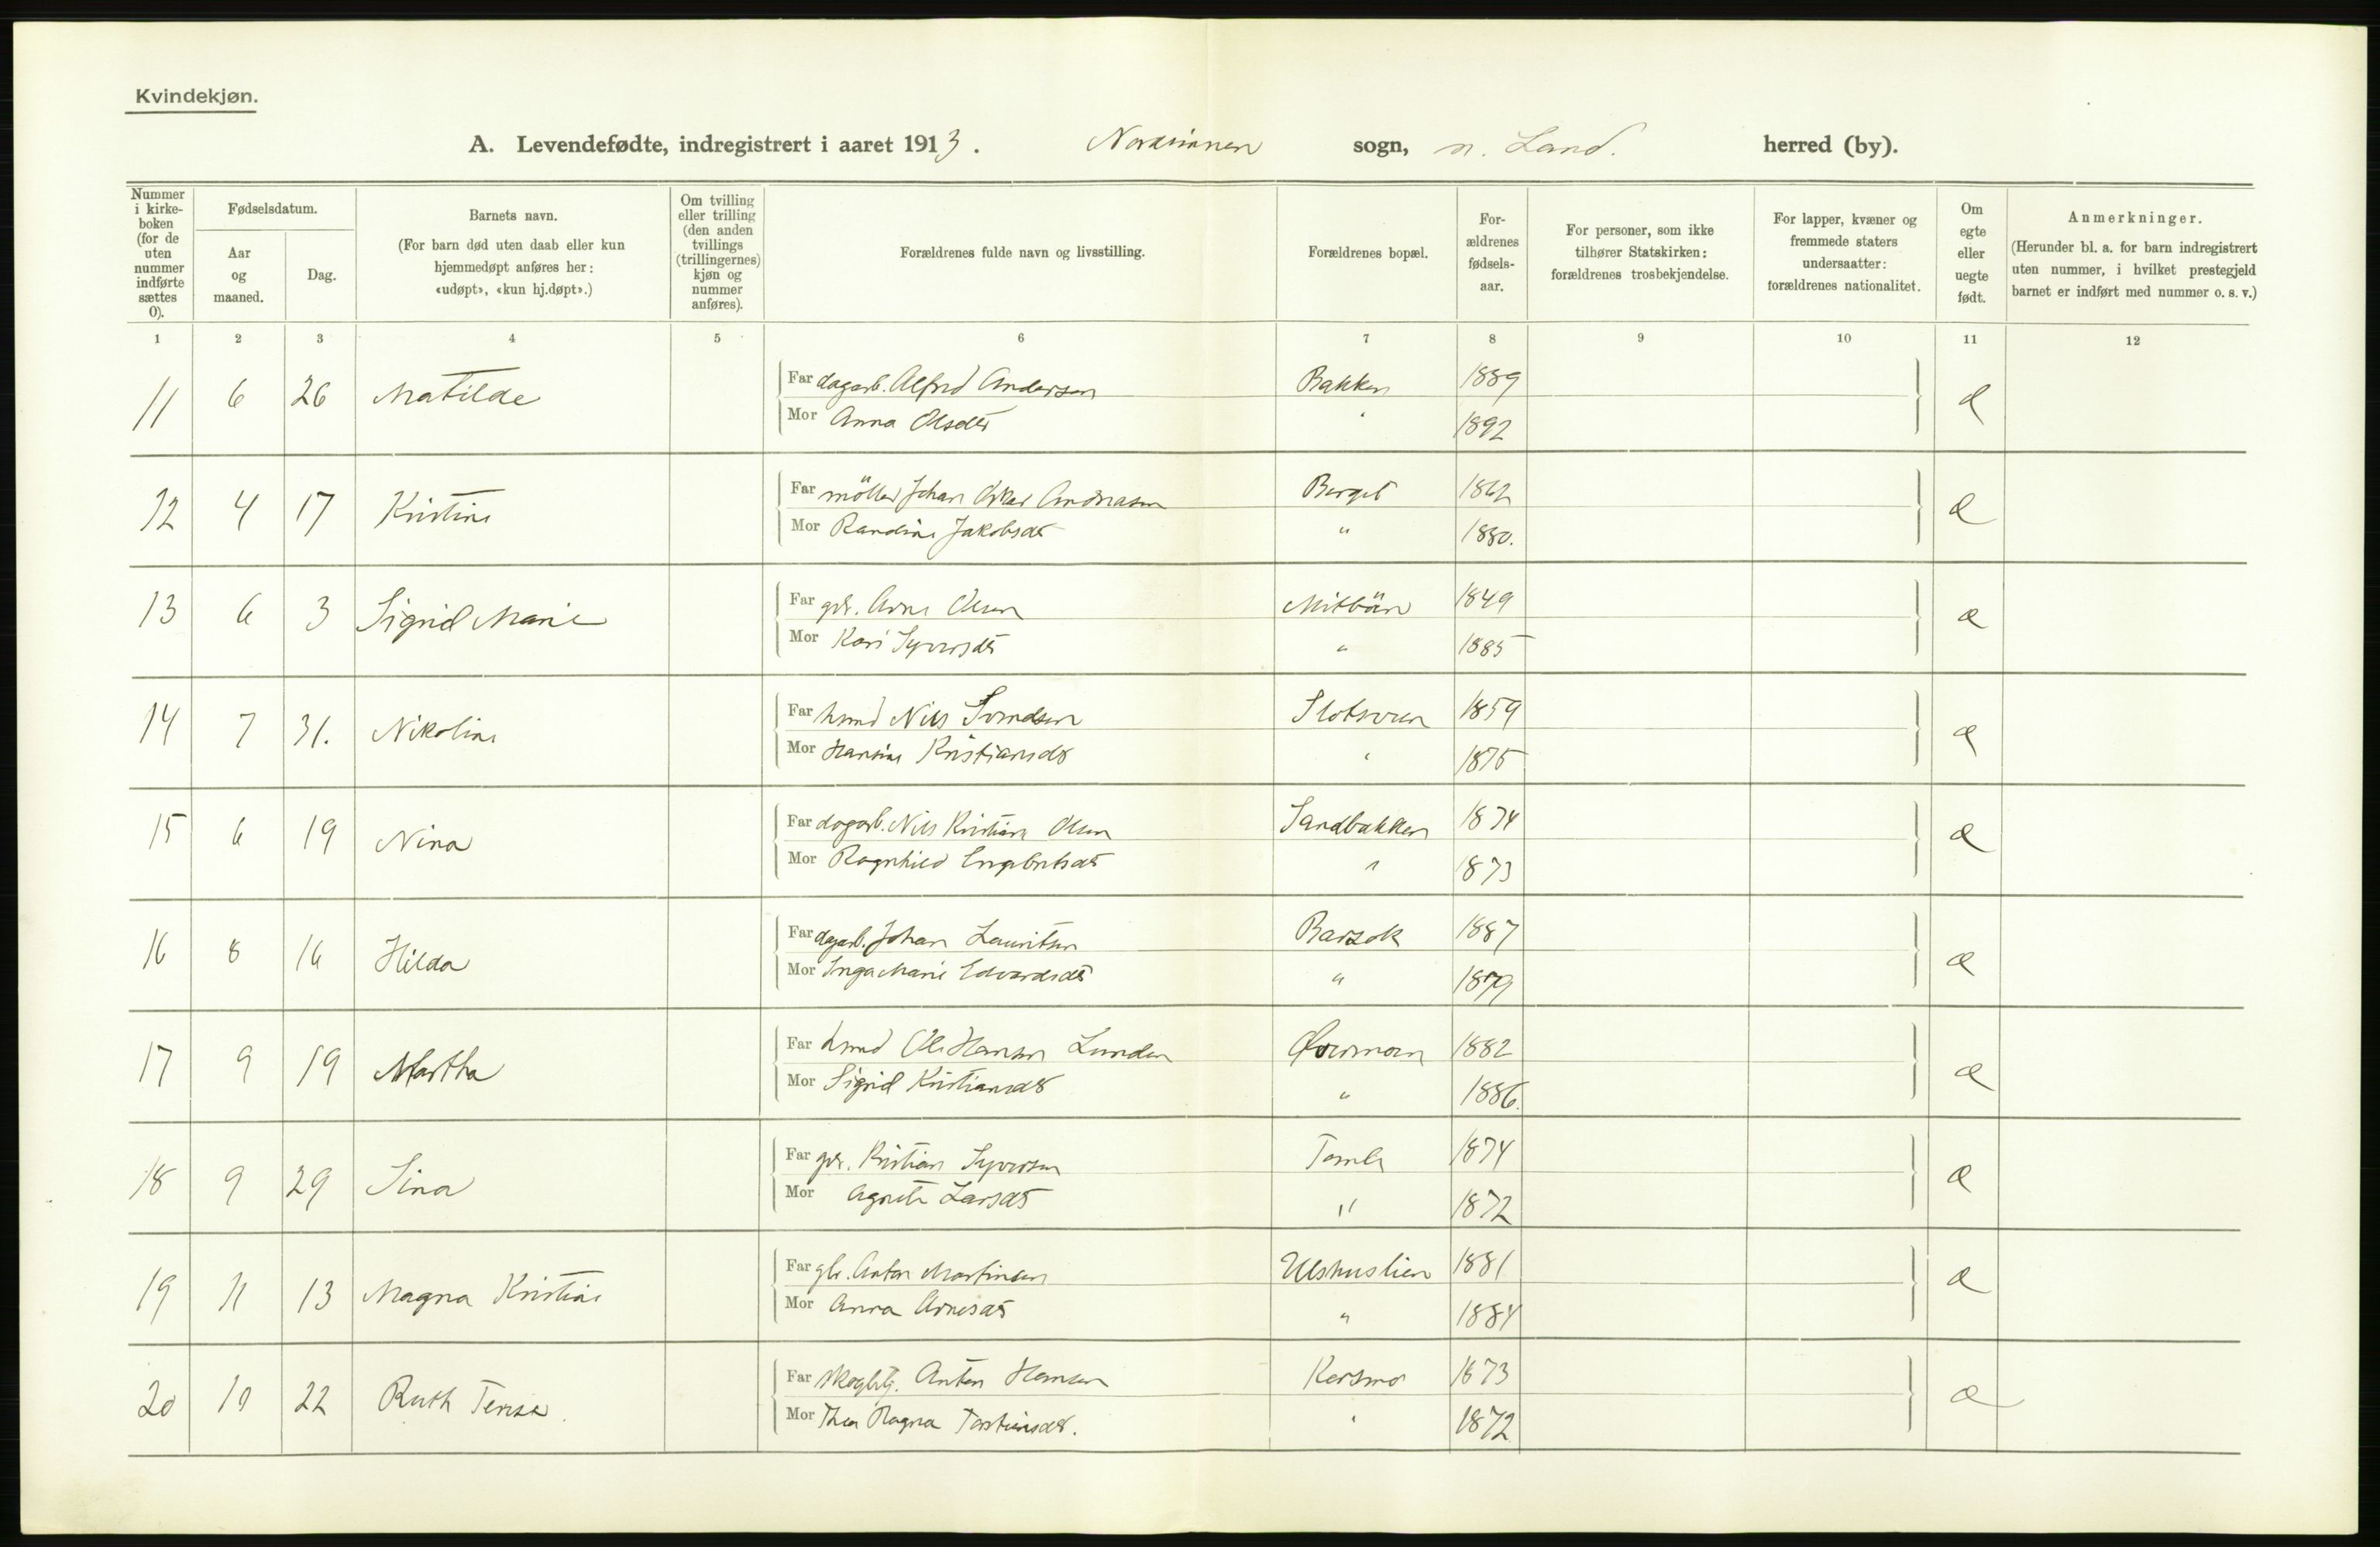 Kvindekjøn.
A. Levendefødte, indregistrert i aaret 1913. Nordsinnen sogn, n. Land. herred (by).
Nummer i kirkeboken (for de uten nummer indførte sættes 0).
Fødselsdatum.
Aar og maaned.
Dag.
Barnets navn.
(For barn død uten daab eller kun hjemmedøpt anføres her: «udøpt», «kun hj.døpt».)
Om tvilling eller trilling (den anden tvillings (trillingernes) kjøn og nummer anføres).
Forældrenes fulde navn og livsstilling.
Forældrenes bopæl.
Forældrenes fødselsaar.
For personer, som ikke tilhører Statskirken: forældrenes trosbekjendelse.
For lapper, kvæner og fremmede staters undersaatter: forældrenes nationalitet.
Om egte eller uegte født.
Anmerkninger.
(Herunder bl. a. for barn indregistrert uten nummer, i hvilket prestegjeld barnet er indført med nummer o. s. v.)
1 2 3 4 5 6 7 8 9 10 11 12
11 6 26 Matilde Far dagarb. Alfred Andersen Bakken 1889 e
Mor Anna Olsdtr " 1892
12 4 17 Kristine Far möller Johan Oskar Andreasen Berget 1862 e
Mor Randine Jakobsdtr " 1880.
13 6 3 Sigrid Marie Far gdr. Arne Olsen Mitbön 1849 e
Mor Kari Syversdtr " 1885
14 7 31. Nikoline Far Nils Svendsen 1859 e
Mor Hansine Kristiansdtr " 1875
15 6 19 Nina Far dagarb. Nils Kristian Olsen Sandbakken 1874 e
Mor Ragnhild Engebretsdtr " 1873
16 8 16 Hilda Far dagarb. Johan Lauritsen Barsok 1887 e
Mor Inga Marie Edvardsdtr " 1879
17 9 19 Martha Far Ole Hansen Lunden 1882 e
Mor Sigrid Kristiansdtr " 1886.
18 9 29 Sina Far gdr. Kristian Syversen Tomle 1874 e
Mor Agnete Larsdtr " 1872
19 11 13 Magna Kristine Far gbr. Anton Martinsen Ulshuslien 1881 e
Mor Anna Arnesdtr " 1884
20 10 22 Ruth Far Anton Hansen Kersmo 1873 e
Mor Thea Ragna Torstensdtr. " 1872